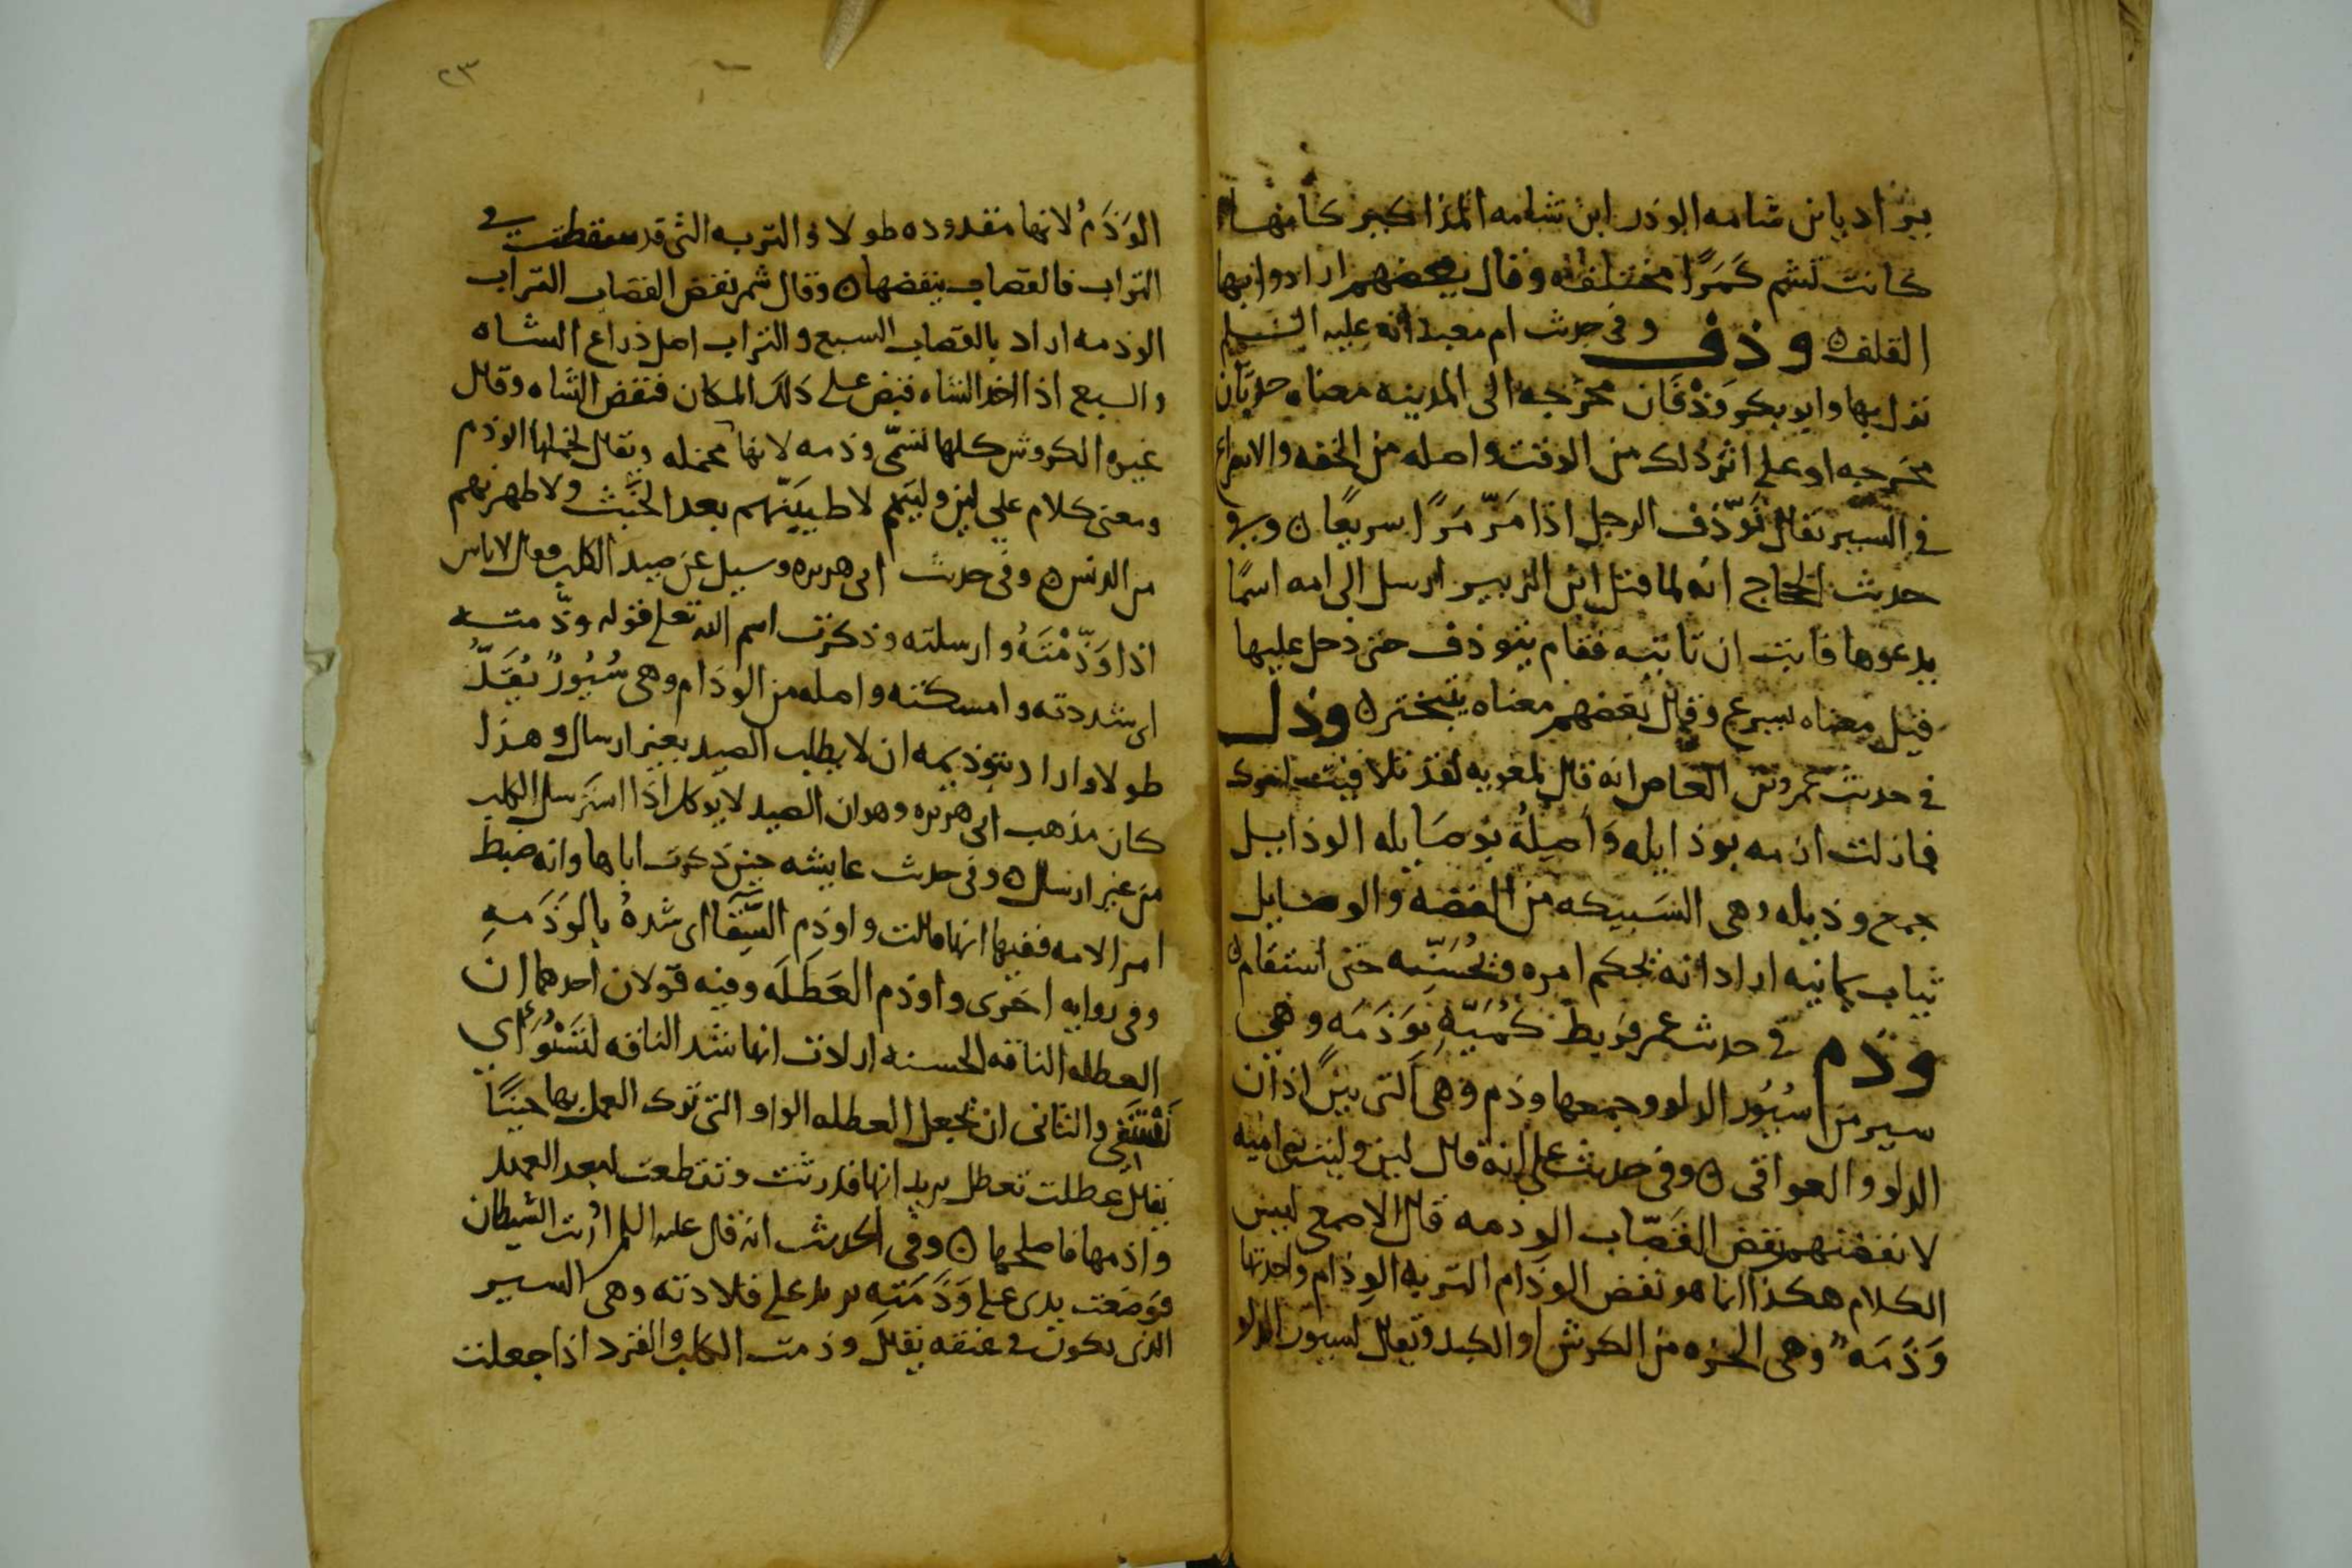 يراد يابن شامه الوذر ابن شامه المذاكير كانها
كانت تشم كَمَرًا مختلفه وقال بعضهم ارادوا بها
القلف ه وذف وفي حديث ام معبد انه عليه السلم
نزل بها وابو بكر وَذْفَان مخرجه الى المدينه معناه حدثان
مخرجه او على اثر ذلك من الوقت واصله من الخفه والاسراع
في السير يقال تَوَذّف الرجل اذا مَرّ مَرًا سريعًا ه وفي
حديث الحجاج انه لما قتل ابن الزبير ارسل الى امه اسما
يدعوها فابت ان تاتيه فقام يتوذف حتى دخل عليها
قيل معناه يسرع وقال بعضهم معناه يتبختر ه وذل
في حديث عمرو بن العاص انه قال لمعويه لقد تلافيت امرك
فمازلت ارمه بوذايله وَاَصِلُهُ بوصَايله الوذايل
جمع وذيله وهي السَبيكه من الفضه والوصايل
ثياب يمانيه اراد انه يحكم امره ويُحَسّنه حتى استقام ه
وذم في حديث عمر فربط كُمَيّه بوَذَمَه وهي
سير من سُيُور الدلو وجمعها وذم وهي التي بين اذان
الدلو والعواقي ه وفي حديث علي انه قال لين وليت بني اميه
لانفضنهم نفض القَصّاب الوذمه قال الاصمعي ليس
الكلام هكذا انما هو نفض الوذام التربه الوِذام واحدتها
وَذَمَه وهي الحزه من الكرش او الكبد ويقال لسيور الدلو
٢٣
الوَذَمُ لانها مقدوده طولا والتربه التي قد سقطت في
التراب فالقصاب ينفضها ه وقال شمر نفض القصاب التراب
الوذمه اراد بالقصاب السبع والتراب اصل ذراع الشاه
والسبع اذا اخذ الشاه قبض على ذلك المكان فنفض الشاه وقال
غيره الكروش كلها تسمّى وذمه لانها مخمله ويقال لخملها الوذم
ومعنى كلام علي لين وليتهم لاطيبَنّهم بعد الخَبَث ولاطهرنهم
من الدنس ه وفي حديث ابي هريره وسيل عن صيد الكلب فقال لا باس
اذا وَذّمْتَهُ وارسلته وذكرت اسم الله تعلى قوله وذّمته
اي شددته وامسكته واصله من الوذام وهي سُيُورٌ تُقَدُّ
طولا واراد بتوذيمه ان لا يطلب الصيد بغير ارسال وهذا
كان مذهب ابي هريره وهو ان الصيد لا يوكل اذا استرسل الكلب
من غير ارسال ه وفي حديث عايشه حين ذكرت اباها وانه ضبط
امر الامه ففيها انها قالت واوذم السِّقَا اي شدهُ بالوَذَمهِ
وفي روايه اخرى واوذم العَطَلَه وفيه قولان احدهما ان
العطله الناقه الحسنه ارادت انها شد الناقه لتَسْنُوَ اي
تَسْتَقِي والثاني ان يجعل العطله الدلو التي ترك العمل بها حينًا
يقال عطلت تعطل يريد انها قد رثت وتقطعت لبعد العهد
واذمها فاصلحها ه وفي الحديث انه قال عليه السلم اُرِيت الشيطان
فوضعت يدي على وَذَمَتِهِ يريد على قلادته وهي السير
الذي يكون في عنقه يقال وذمت الكلب والقرد اذا جعلت